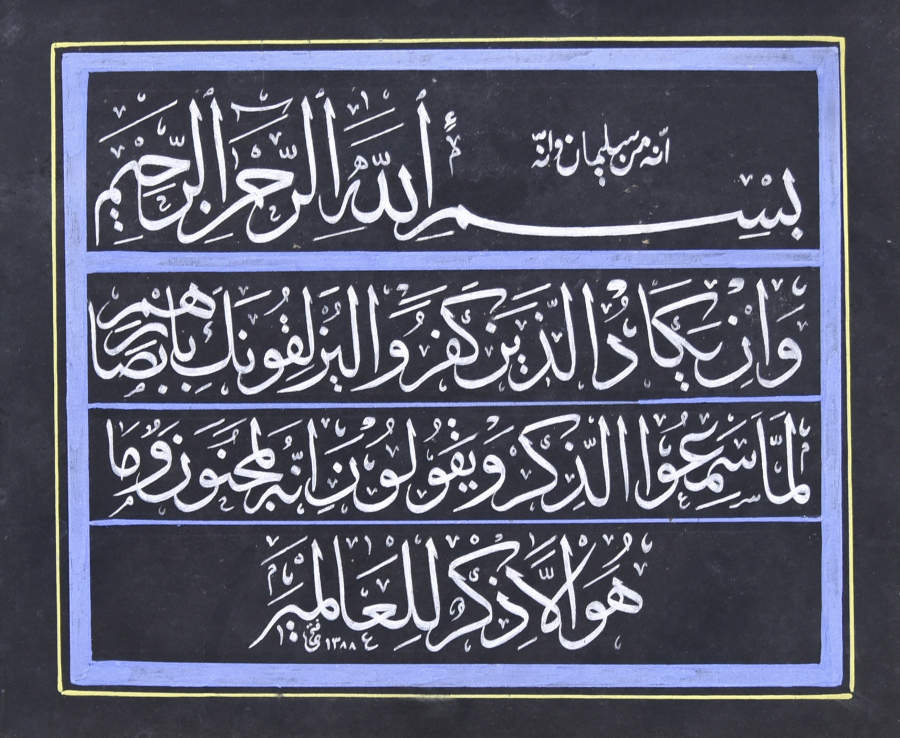 انه من سليمان وانه
بِسْمِ اللهِ الرَّحْمٰنِ الرَّحِيمِ
وَاِنْ يَكَادُ الَّذِينَ كَفَرُوا لَيُزْلِقُونَكَ بِاَبْصَارِهِمْ
لَمَّا سَمِعُوا الذِّكْرَ وَيَقُولُونَ اِنَّهُ لَمَجْنُونٌ وَمَا
هُوَ اِلَّا ذِكْرٌ لِلْعَالَمِينَ
١٣٨٨